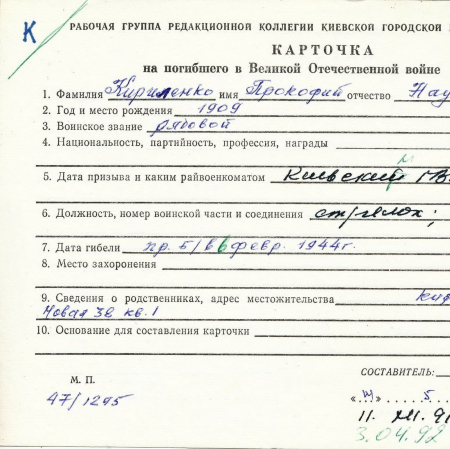 К
РАБОЧАЯ ГРУППА РЕДАКЦИОННОЙ КОЛЛЕГИИ КИЕВСКОЙ ГОРОДСКОЙ
КАРТОЧКА
на погибшего в Великой Отечественной войне
1. Фамилия Кириленко имя Прокофий отчество Нау
2. Год и место рождения 1909
3. Воинское звание рядовой
4. Национальность, партийность, профессия, награды
5. Дата призыва и каким райвоенкоматом Киевский
6. Должность, номер воинской части и соединения стрелок;
7. Дата гибели пр. б/в 6 февр. 1944г.
8. Место захоронения
9. Сведения о родственниках, адрес местожительства
Новая 38 кв. 1
10. Основание для составления карточки
СОСТАВИТЕЛЬ:
М. П.
47/1295
5
11. XII. 91
3.04.92